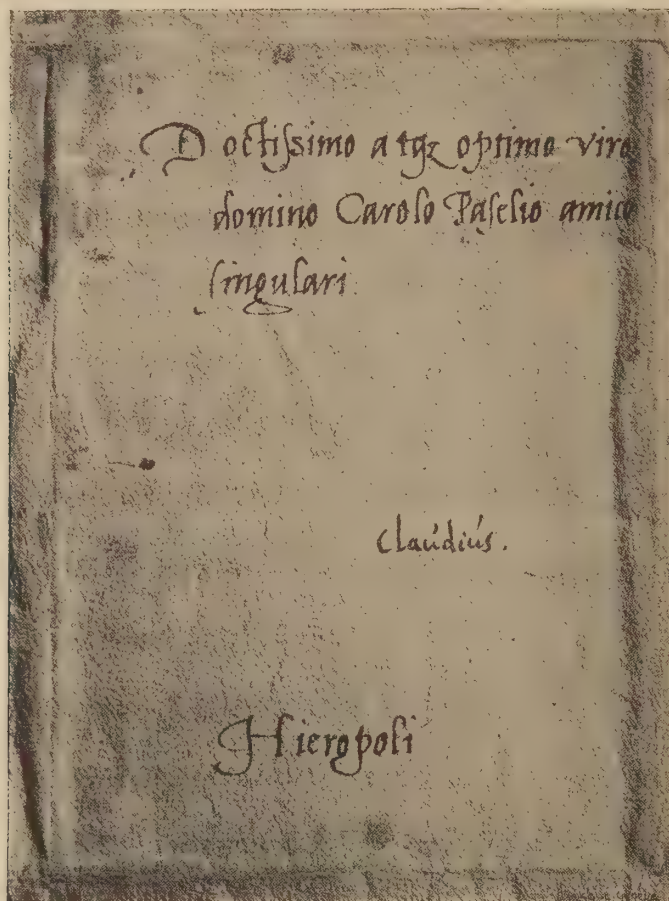 Doctissimo atqz optimo viro
domino Carolo Paselio amico
singulari
Claudius.
Hieropoli